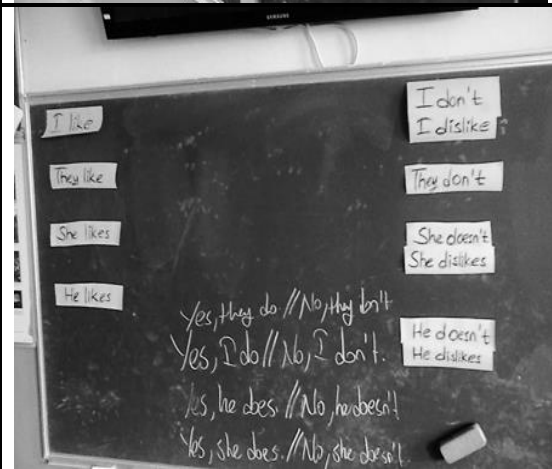 SAMSUNG
I like
They like
She likes
He likes
I don't
I dislike
They don't
She doesn't
She dislikes
He doesn't
He dislikes
Yes, they do // No, they don't
Yes, I do // No, I don't.
Yes, he does. // No, he doesn't
Yes, she does. // No, she doesn't.